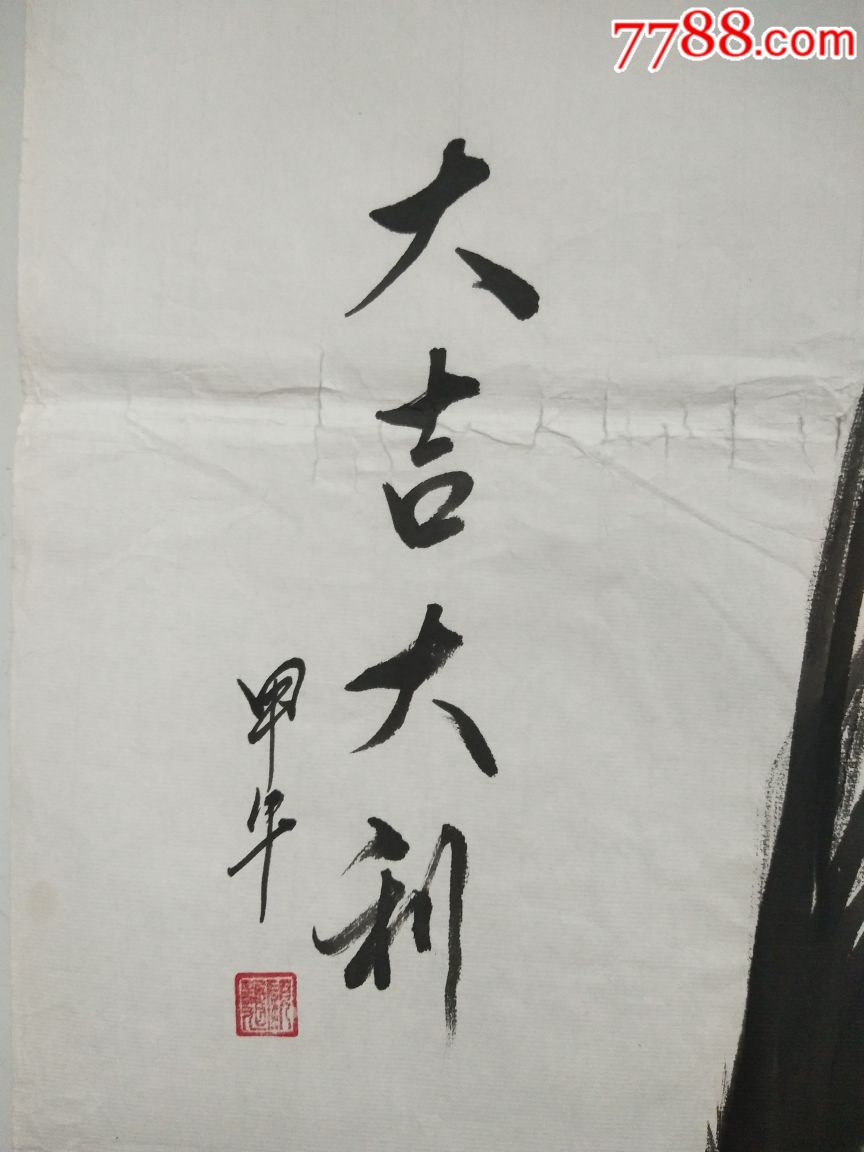 7788.com
大吉大利
甲午